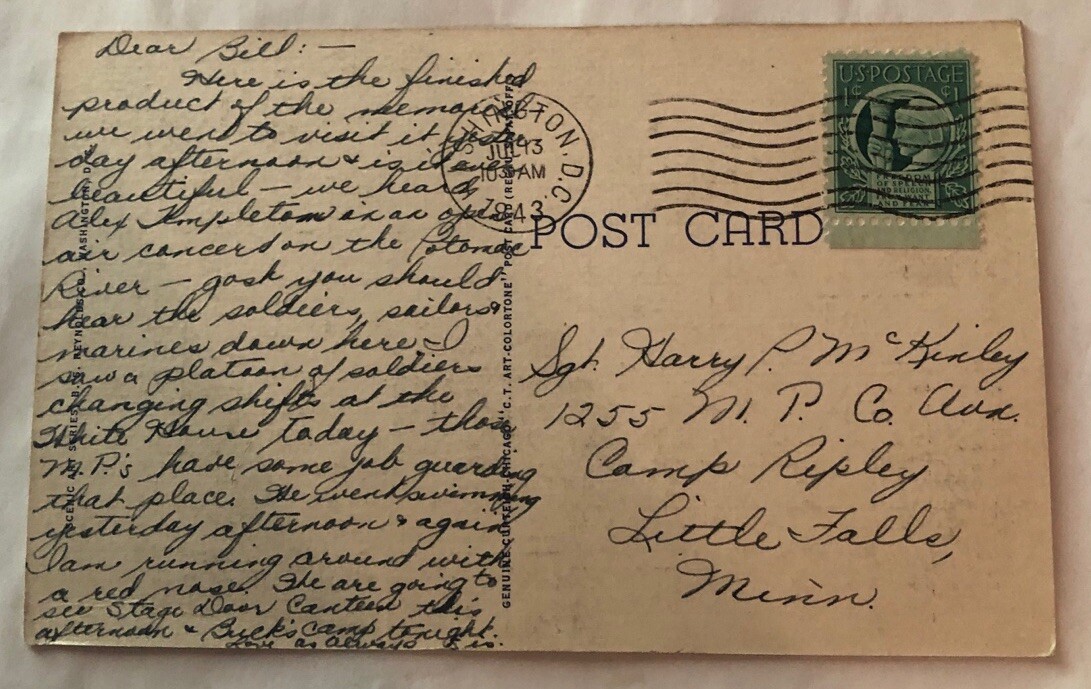 Dear Bill: —
Here is the finished
product of the memorial
we went to visit it yester
day afternoon & is it ever
beautiful — we heard
Alex Templeton in an open
air concert on the Potomac
River — gosh you should
hear the soldiers, sailors &
marines down here — I
saw a platoon of soldiers
changing shifts at the
White House today — those
M.P.'s have some job guarding
that place. We went swimming
yesterday afternoon & again
I am running around with
a red nose. We are going to
see Stage Door Canteen this
afternoon & Buck's camp tonight.
Love as always
SCENIC ART SERIES, B. S. REYNOLDS CO., WASHINGTON, D.
GENUINE CURTEICH-CHICAGO "C. T. ART-COLORTONE" POST CARD (REG. U. S. PAT. OFF.)
WASHINGTON, D.C.
JUL 13
10 30 AM
1943
U·S·POSTAGE
1¢ ¢1
FREEDOM
OF SPEECH
AND RELIGION,
FROM WANT
AND FEAR
POST CARD
Sgt. Harry P. McKinley
1255 M. P. Co. Avn.
Camp Ripley
Little Falls,
Minn.